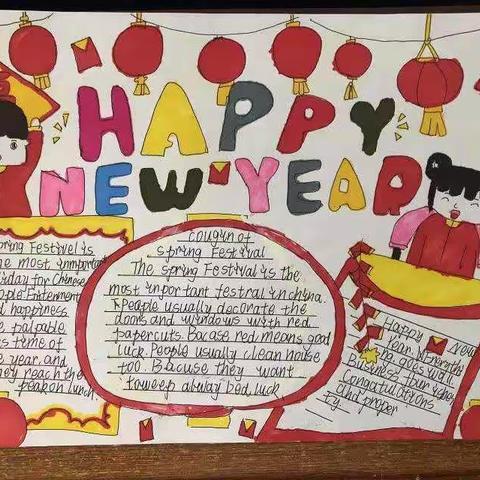 HAPPY
NEW YEAR
pring Festivel is
he most inmportant
iday for Chinese
ople Entenment
d happiness
e palpable
is time of
e year and
ey reach the
peak on lunch
couqin of
spring Festival
The spring Festival is the
most important festral in china.
People usually decorate the
doors and windows with red
papercuts. Bacase red means good
luck. People usually clean house
too. Bacuse they want
to weep alway bad luck
Happy New
Year
goes well
Business
Congatulations
and proper
ty